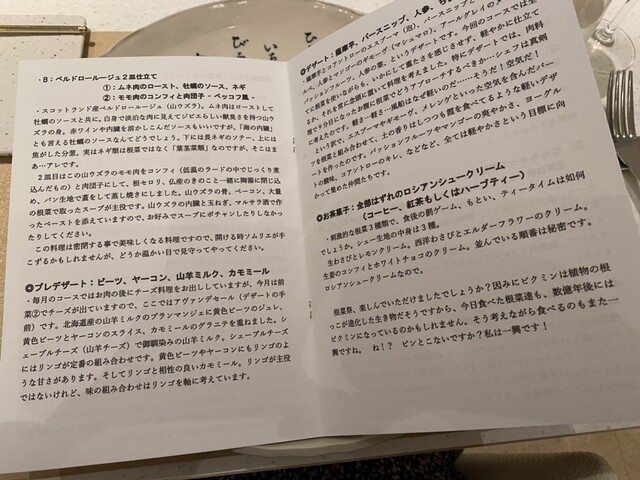 ・B：ペルドロールージュ２皿仕立て
①：ムネ肉のロースト、牡蠣のソース、ネギ
②：モモ肉のコンフィと肉団子 - ベッコフ風 -
・スコットランド産ペルドロールージュ（山ウズラ）。ムネ肉はローストして
牡蠣のソースと共に。白身で淡泊な肉に見えてジビエらしい獣臭さを持つ山ウ
ズラの身。赤ワインや内臓を溶かしこんだソースもいいですが、「海の内臓」
とも言える牡蠣のソースなんてどうでしょう。下には長ネギのソテー、上には
焦がした分葱。実はネギ類は根菜ではなく「葉茎菜類」なのですが、そこはま
あ…アレです。
２皿目はこの山ウズラのモモ肉をコンフィ（低温のラードの中でじっくり煮
込んだもの）と肉団子にして、根セロリ、仏産のきのこと一緒に陶器に閉じ込
め、パン生地で蓋をして蒸し焼きにしました。山ウズラの骨、ベーコン、大量
の根菜で取ったスープが主役です。山ウズラの内臓と玉ねぎ、マルサラ酒で作
ったペーストを添えていますので、お好みでスープにポチャンしたりしなかっ
たりしてください。
この料理は密閉する事で美味しくなる料理ですので、開ける時ソムリエが手
こずるかもしれませんが、どうか温かい目で見守ってやってください。
◎プレデザート：ビーツ、ヤーコン、山羊ミルク、カモミール
・毎月のコースではお肉の後にチーズ料理をお出ししていますが、今月は前
菜②でチーズが出ていますので、ここではアヴァンデセール（デザートの手
前）です。北海道産の山羊ミルクのブランマンジェに黄色ビーツのジュレ、
黄色ビーツとヤーコンのスライス、カモミールのグラニテを重ねました。シ
ェーブルチーズ（山羊チーズ）で御馴染みの山羊ミルク。シェーブルチーズ
にはリンゴが定番の組み合わせです。黄色ビーツやヤーコンにもリンゴのよ
うな甘さがあります。そしてリンゴと相性の良いカモミール。リンゴが主役
ではないけれど、味の組み合わせはリンゴを軸に考えています。
◎デザート：薩摩芋、パースニップ、人参、
薩摩芋とコアントローのエスプーマ（泡）、パースニップと
ルス、人参とマンゴーのギモーヴ（マシュマロ）、アールグレイのメ
パッションフルーツ、人参の葉、というデザートです。今回のコースでは全
て根菜を使いながらも、いかにして重たさを感じさせず、軽やかに仕立て
るか、それを常に念頭に置いて料理を考えました。特にデザートでは、肉料
理で９分目になったお腹に根菜でどうアプローチするべきか…シェフは真剣
に考えたのです。軽さ…軽さ…風船はなぜ軽いのだ……そうだ！空気だ！
という訳で、エスプーマやギモーヴ、メレンゲといった空気を含んだパー
ツを根菜と組み合わせて、土の香りはしつつも霞を食べてるような軽いデザ
ートを作ったのです。パッションフルーツやマンゴーの爽やかさ、ヨーグル
トの酸味、コアントローのキレ、などなど、全ては軽やかさという目標に向
かって集めた仲間たちです。
◎お茶菓子：全部はずれのロシアンシュークリーム
（コーヒー、紅茶もしくはハーブティー）
・刺激的な根菜３種類で、食後の罰ゲーム、もとい、ティータイムは如何
でしょうか。シュー生地の中身は３種。
生わさびとレモンクリーム。西洋わさびとエルダーフラワーのクリーム。
生姜のコンフィとホワイトチョコのクリーム。並んでいる順番は秘密です。
ロシアンシュークリームなので。
根菜祭、楽しんでいただけましたでしょうか？因みにピクミンは植物の根
っこが進化した生き物だそうですから、今日食べた根菜達も、数億年後には
ピクミンになっているのかもしれません。そう考えながら食べるのもまた一
興ですね。ね！？ ピンとこないですか？私は一興です！